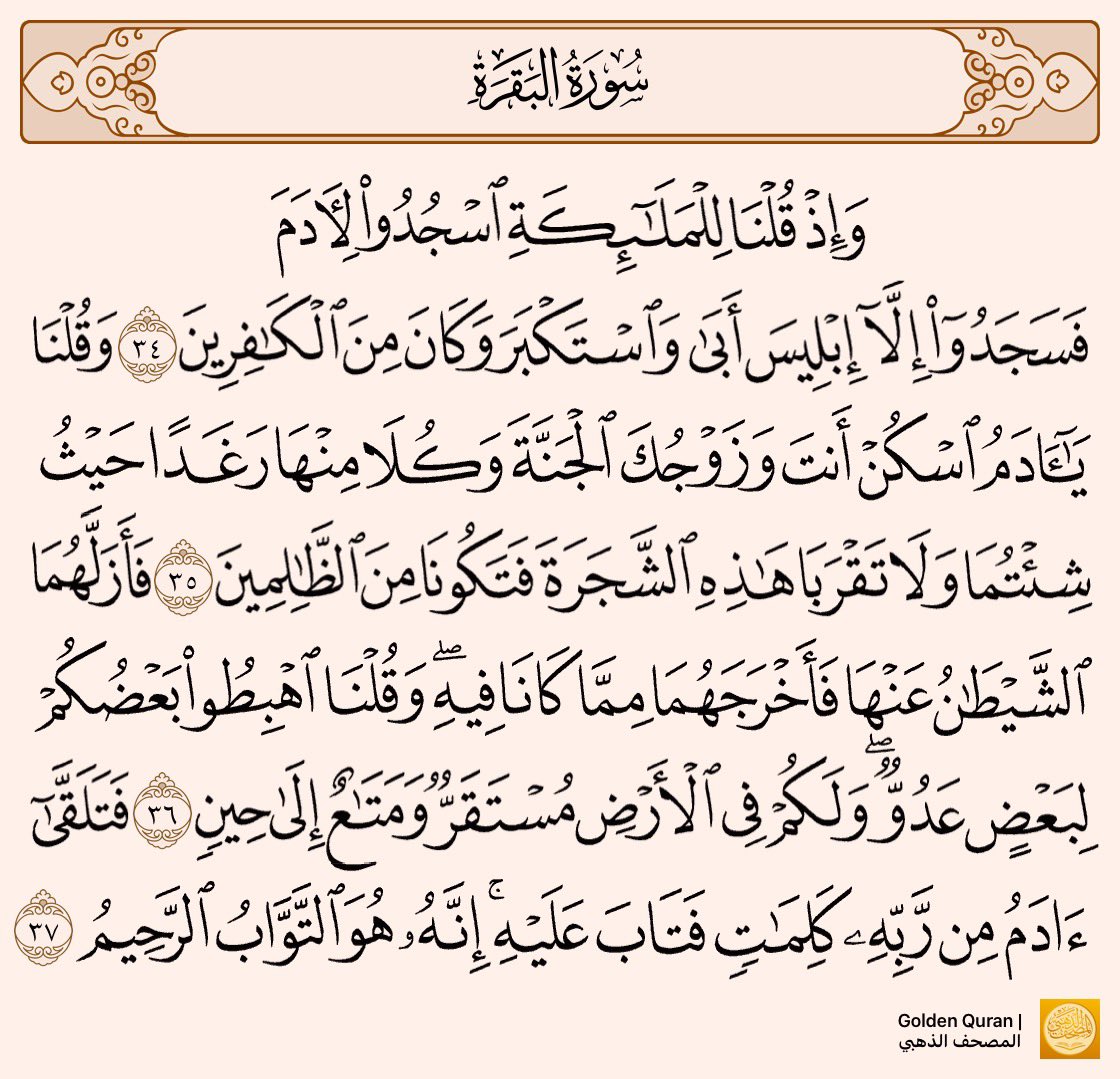 سُورَةُ البَقَرَةِ
وَإِذۡ قُلۡنَا لِلۡمَلَٰٓئِكَةِ ٱسۡجُدُواْ لِأٓدَمَ
فَسَجَدُوٓاْ إِلَّآ إِبۡلِيسَ أَبَىٰ وَٱسۡتَكۡبَرَ وَكَانَ مِنَ ٱلۡكَٰفِرِينَ ٣٤ وَقُلۡنَا
يَٰٓـَٔادَمُ ٱسۡكُنۡ أَنتَ وَزَوۡجُكَ ٱلۡجَنَّةَ وَكُلَا مِنۡهَا رَغَدًا حَيۡثُ
شِئۡتُمَا وَلَا تَقۡرَبَا هَٰذِهِ ٱلشَّجَرَةَ فَتَكُونَا مِنَ ٱلظَّٰلِمِينَ ٣٥ فَأَزَلَّهُمَا
ٱلشَّيۡطَٰنُ عَنۡهَا فَأَخۡرَجَهُمَا مِمَّا كَانَا فِيهِۖ وَقُلۡنَا ٱهۡبِطُواْ بَعۡضُكُمۡ
لِبَعۡضٍ عَدُوّٞۖ وَلَكُمۡ فِي ٱلۡأَرۡضِ مُسۡتَقَرّٞ وَمَتَٰعٌ إِلَىٰ حِينٖ ٣٦ فَتَلَقَّىٰٓ
ءَادَمُ مِن رَّبِّهِۦ كَلِمَٰتٖ فَتَابَ عَلَيۡهِۚ إِنَّهُۥ هُوَ ٱلتَّوَّابُ ٱلرَّحِيمُ ٣٧
Golden Quran |
المصحف الذهبي